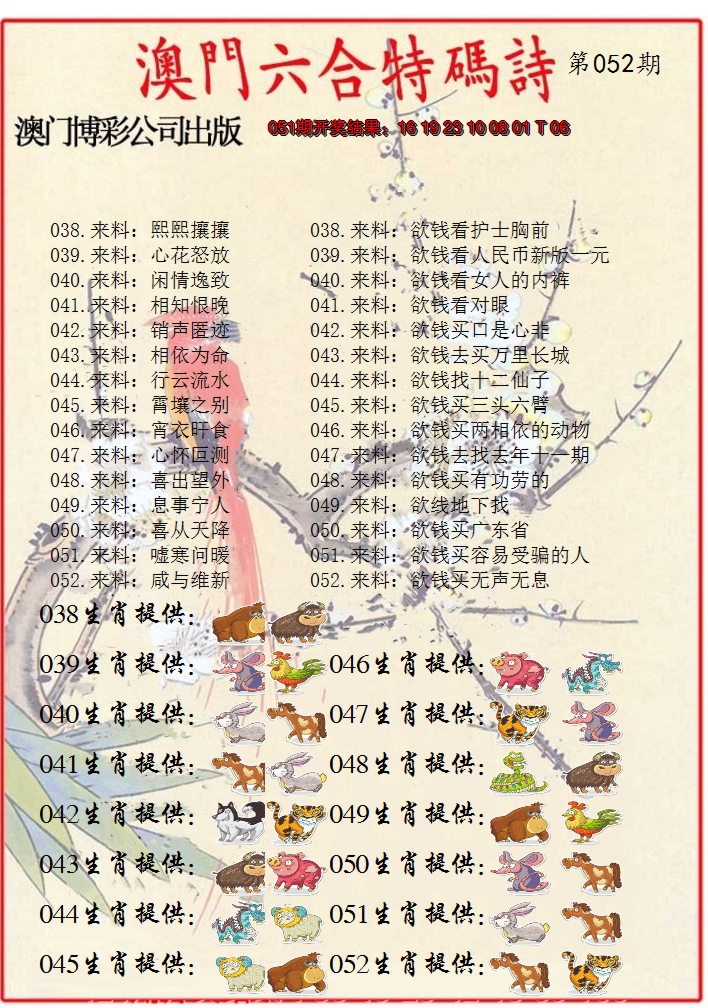 澳門六合特碼詩 第052期
澳门博彩公司出版 051期开奖结果：16 19 23 10 08 01 T 06
038.来料：熙熙攘攘 038.来料：欲钱看护士胸前
039.来料：心花怒放 039.来料：欲钱看人民币新版一元
040.来料：闲情逸致 040.来料：欲钱看女人的内裤
041.来料：相知恨晚 041.来料：欲钱看对眼
042.来料：销声匿迹 042.来料：欲钱买口是心非
043.来料：相依为命 043.来料：欲钱去买万里长城
044.来料：行云流水 044.来料：欲钱找十二仙子
045.来料：霄壤之别 045.来料：欲钱买三头六臂
046.来料：宵衣旰食 046.来料：欲钱买两相依的动物
047.来料：心怀叵测 047.来料：欲钱去找去年十一期
048.来料：喜出望外 048.来料：欲钱买有功劳的
049.来料：息事宁人 049.来料：欲线地下找
050.来料：喜从天降 050.来料：欲钱买广东省
051.来料：嘘寒问暖 051.来料：欲钱买容易受骗的人
052.来料：咸与维新 052.来料：欲钱买无声无息
038生肖提供：
039生肖提供： 046生肖提供：
040生肖提供： 047生肖提供：
041生肖提供： 048生肖提供：
042生肖提供： 049生肖提供：
043生肖提供： 050生肖提供：
044生肖提供： 051生肖提供：
045生肖提供： 052生肖提供：